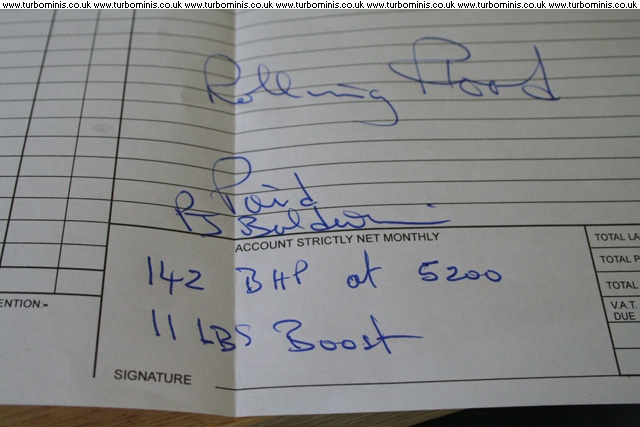 www.turbominis.co.uk www.turbominis.co.uk www.turbominis.co.uk www.turbominis.co.uk www.turbominis.co.uk www.turbominis.co.uk
Rolling Road
Paid
PJ Baldwin
ACCOUNT STRICTLY NET MONTHLY
142 BHP at 5200
11 LBS Boost
SIGNATURE
ENTION:-
TOTAL LA
TOTAL P
TOTAL
V.A.T.
DUE